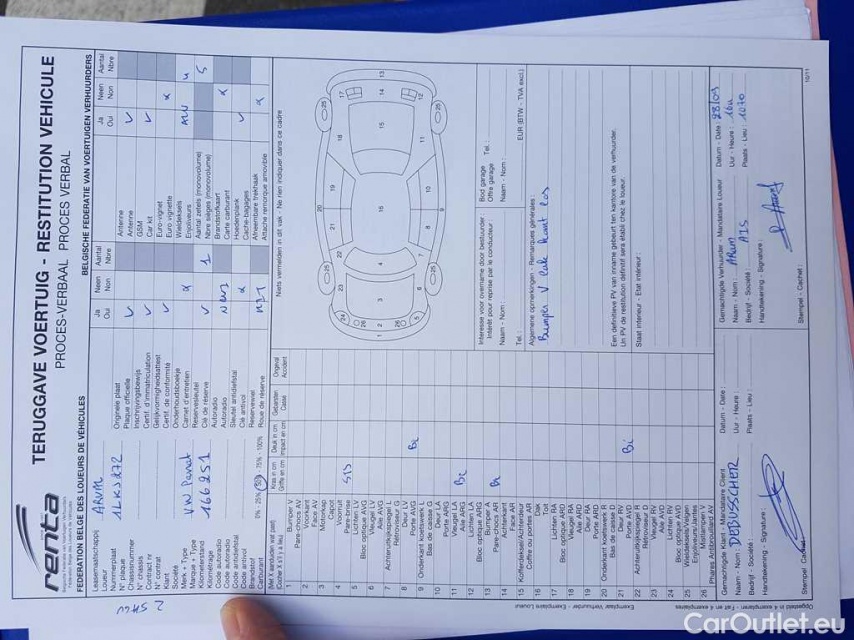 renta
TERUGGAVE VOERTUIG - RESTITUTION VEHICULE
PROCES-VERBAAL PROCES VERBAL
FEDERATION BELGE DES LOUEURS DE VÉHICULES
BELGISCHE FEDERATIE VAN VOERTUIGEN VERHUURDERS
Leasemaatschappij
Loueur
Nummerplaat
N° plaque
Chassisnummer
N° chassis
Contract nr
N° contrat
Klant
Société
Merk + Type
Marque + Type
Kilometerstand
Kilométrage
Code autoradio
Code autoradio
Code antidiefstal
Code antivol
Brandstof
Carburant
0% - 25% - 50 - 75% - 100%
ARUM
1LKJ272
VW Passat
166251
Ja Neen Aantal
Oui Non Nbre
Originele plaat
Plaque officielle
Inschrijvingsbewijs
Certif. d'immatriculation
Gelijkvormigheidsattest
Certif. de conformité
Onderhoudsboekje
Carnet d'entretien
Reservesleutel
Clé de réserve
Autoradio
Autoradio
Sleutel antidiefstal
Clé antivol
Reservewiel
Roue de réserve
Ja Neen Aantal
Oui Non Nbre
Antenne
Antenne
GSM
Car kit
Euro-vignet
Euro vignette
Wieldeksels
Enjoliveurs
Aantal zetels (monovolume)
Nbre sièges (monovolume)
Brandstofkaart
Carte carburant
Hoedenplank
Cache-bagages
Afneembare trekhaak
Attache remorque amovible
(Met X aanduiden wat past)
(Cocher X s'il y a lieu)
Kras in cm
Griffe en cm
Deuk in cm
Impact en cm
Gebarsten
Cassé
Origineel
Accident
Niets vermelden in dit vak - Ne rien indiquer dans ce cadre
1 Bumper V
Pare-chocs AV
2 Voorkant
Face AV
3 Motorkap
Capot
4 Voorruit
Pare-brise
5 Lichten LV
Bloc optique AVG
6 Vleugel LV
Aile AVG
7 Achteruitkijkspiegel L
Rétroviseur G
8 Deur LV
Porte AVG
9 Onderkant Koetswerk L
Bas de caisse G
10 Deur LA
Porte ARG
11 Vleugel LA
Aile ARG
12 Lichten LA
Bloc optique ARG
13 Bumper A
Pare-chocs AR
14 Achterkant
Face AR
15 Kofferdeksel/Achterdeur
Coffre ou portes AR
16 Dak
Toit
17 Lichten RA
Bloc optique ARD
18 Vleugel RA
Aile ARD
19 Deur RA
Porte ARD
20 Onderkant Koetswerk R
Bas de caisse D
21 Deur RV
Porte AVD
22 Achteruitkijkspiegel R
Rétroviseur D
23 Vleugel RV
Aile AVD
24 Lichten RV
Bloc optique AVD
25 Wieldoppen/Velgen
Enjoliveurs/Jantes
26 Mistlampen V
Phares Antibrouillard AV
Interesse voor overname door bestuurder :
Intérêt pour reprise par le conducteur :
Naam - Nom :
Tel. :
Bod garage
Offre garage
Tel. :
Naam - Nom :
EUR (BTW - TVA excl.)
Algemene opmerkingen - Remarques générales :
Bumper V
Een definitieve PV van inname gebeurt ten kantore van de verhuurder.
Un PV de restitution définitif sera établi chez le loueur.
Staat interieur - Etat intérieur :
Gemachtigde Klant - Mandataire Client
Datum - Date :
Naam - Nom : DEBUSSCHER
Uur - Heure :
Bedrijf - Société :
Plaats - Lieu :
Handtekening - Signature :
Stempel - Cachet :
Gemachtigde Verhuurder - Mandataire Loueur
Datum - Date : 28/09
Naam - Nom : ARUM
Uur - Heure : 16u
Bedrijf - Société : AIS
Plaats - Lieu : 1070
Handtekening - Signature :
Stempel - Cachet :
10/11
CarOutlet.eu